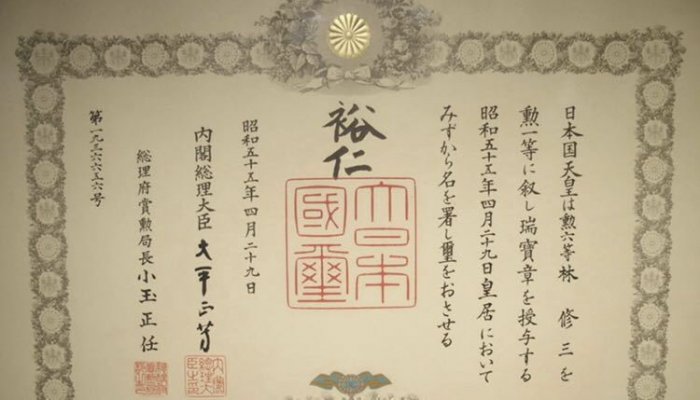 日本国天皇は勲六等林 修三を
勲一等に叙し瑞寶章を授与する
昭和五十五年四月二十九日皇居において
みずから名を署し璽をおさせる
裕仁
大日本國璽
昭和五十五年四月二十九日
内閣総理大臣 大平正芳
総理府賞勲局長 小玉正任
第一九三六六五六号